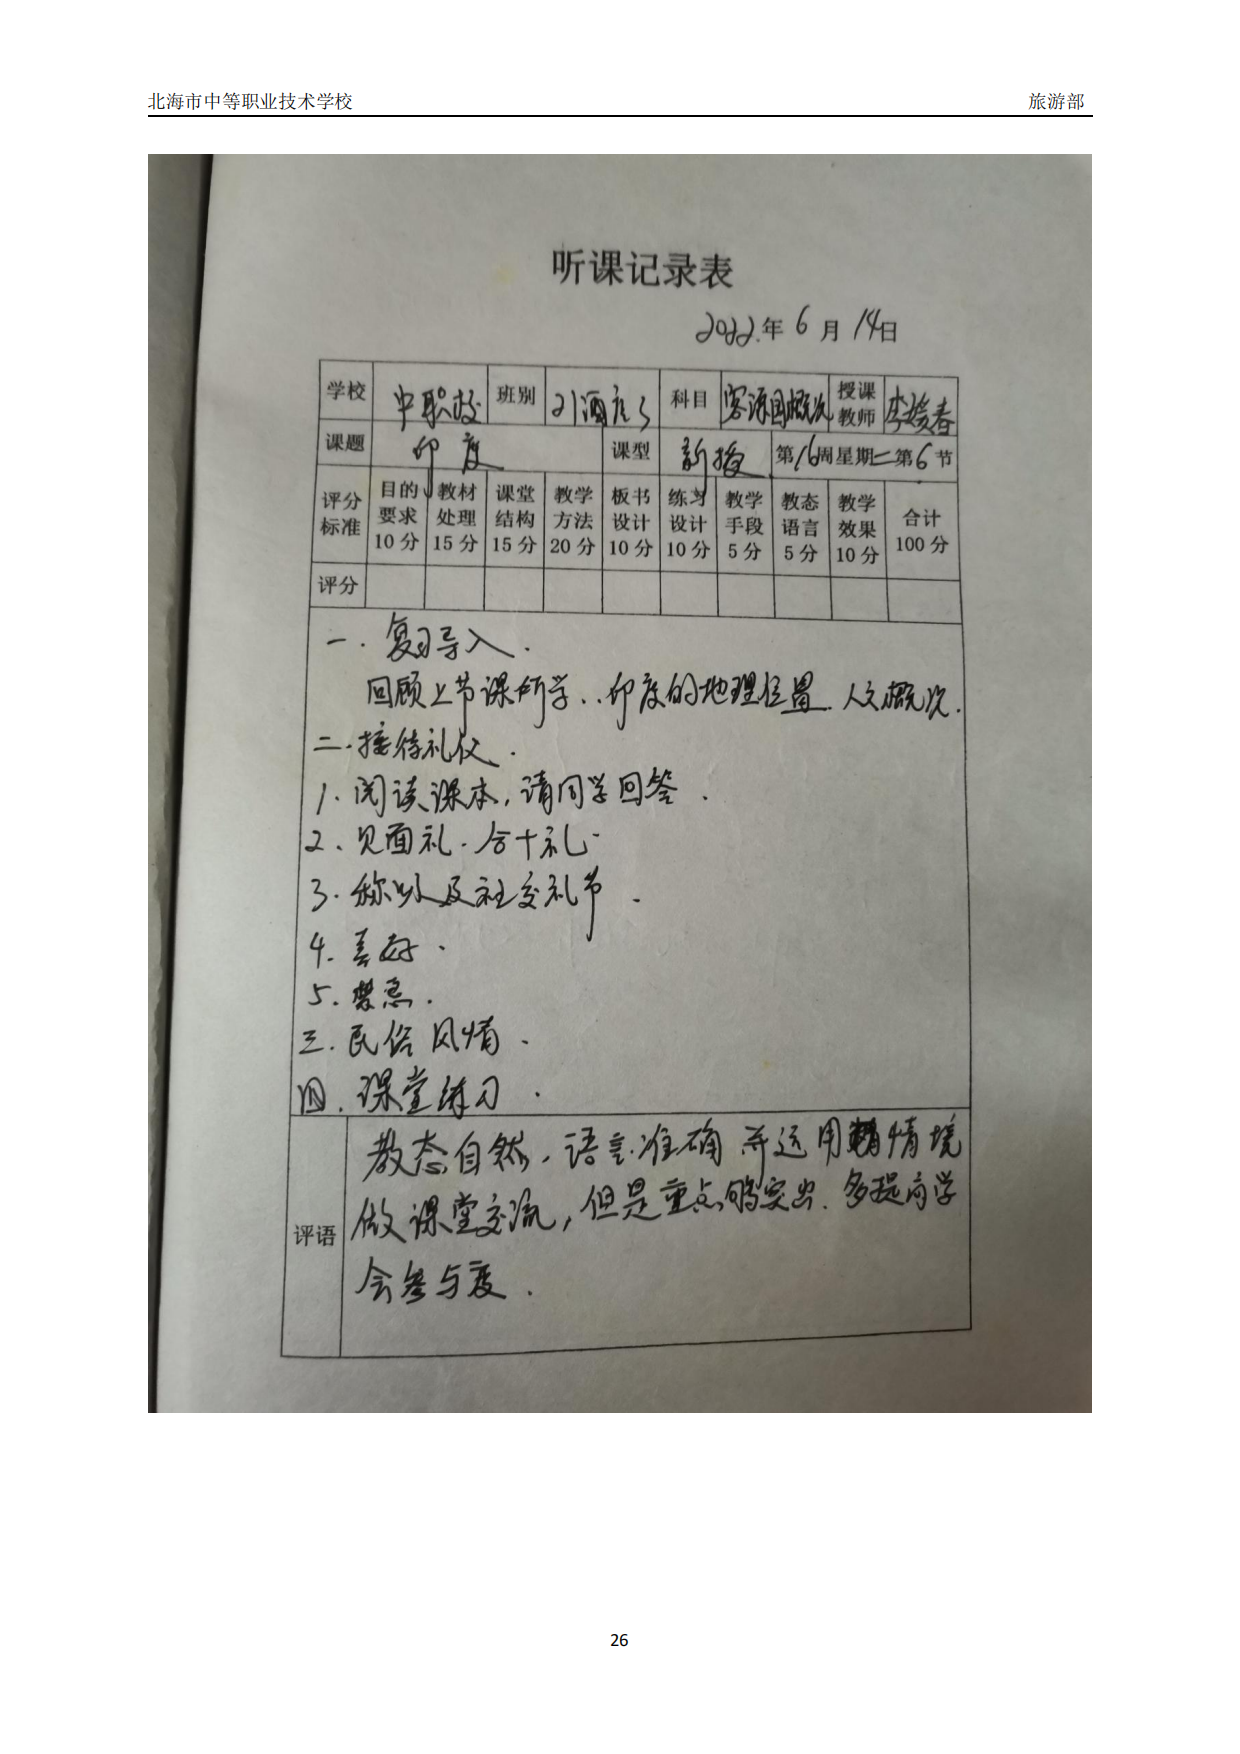 北海市中等职业技术学校 旅游部
听课记录表
2022.年 6 月 14日
学校 中职校 班别 21酒店3 科目 客源国概况 授课教师 李媛春
课题 印度 课型 新授 第16周星期二第6节
评分标准 目的要求10分 教材处理15分 课堂结构15分 教学方法20分 板书设计10分 练习设计10分 教学手段5分 教态语言5分 教学效果10分 合计100分
评分
一.复习导入.
回顾上节课所学..印度的地理位置.人文概况.
二.接待礼仪.
1.阅读课本,请同学回答.
2、见面礼.合十礼.
3.称以及社交礼节.
4.喜好.
5.禁忌.
三.民俗风情.
四.课堂练习.
评语
教态自然.语言准确 并运用情境
做课堂交流,但是重点够突出.多提高学
会参与度.
26